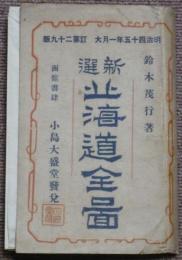 明治四十五年一月大訂第二十九版
鈴木茂行著
新選
北海道全圖
函館書肆
小島大盛堂發兌